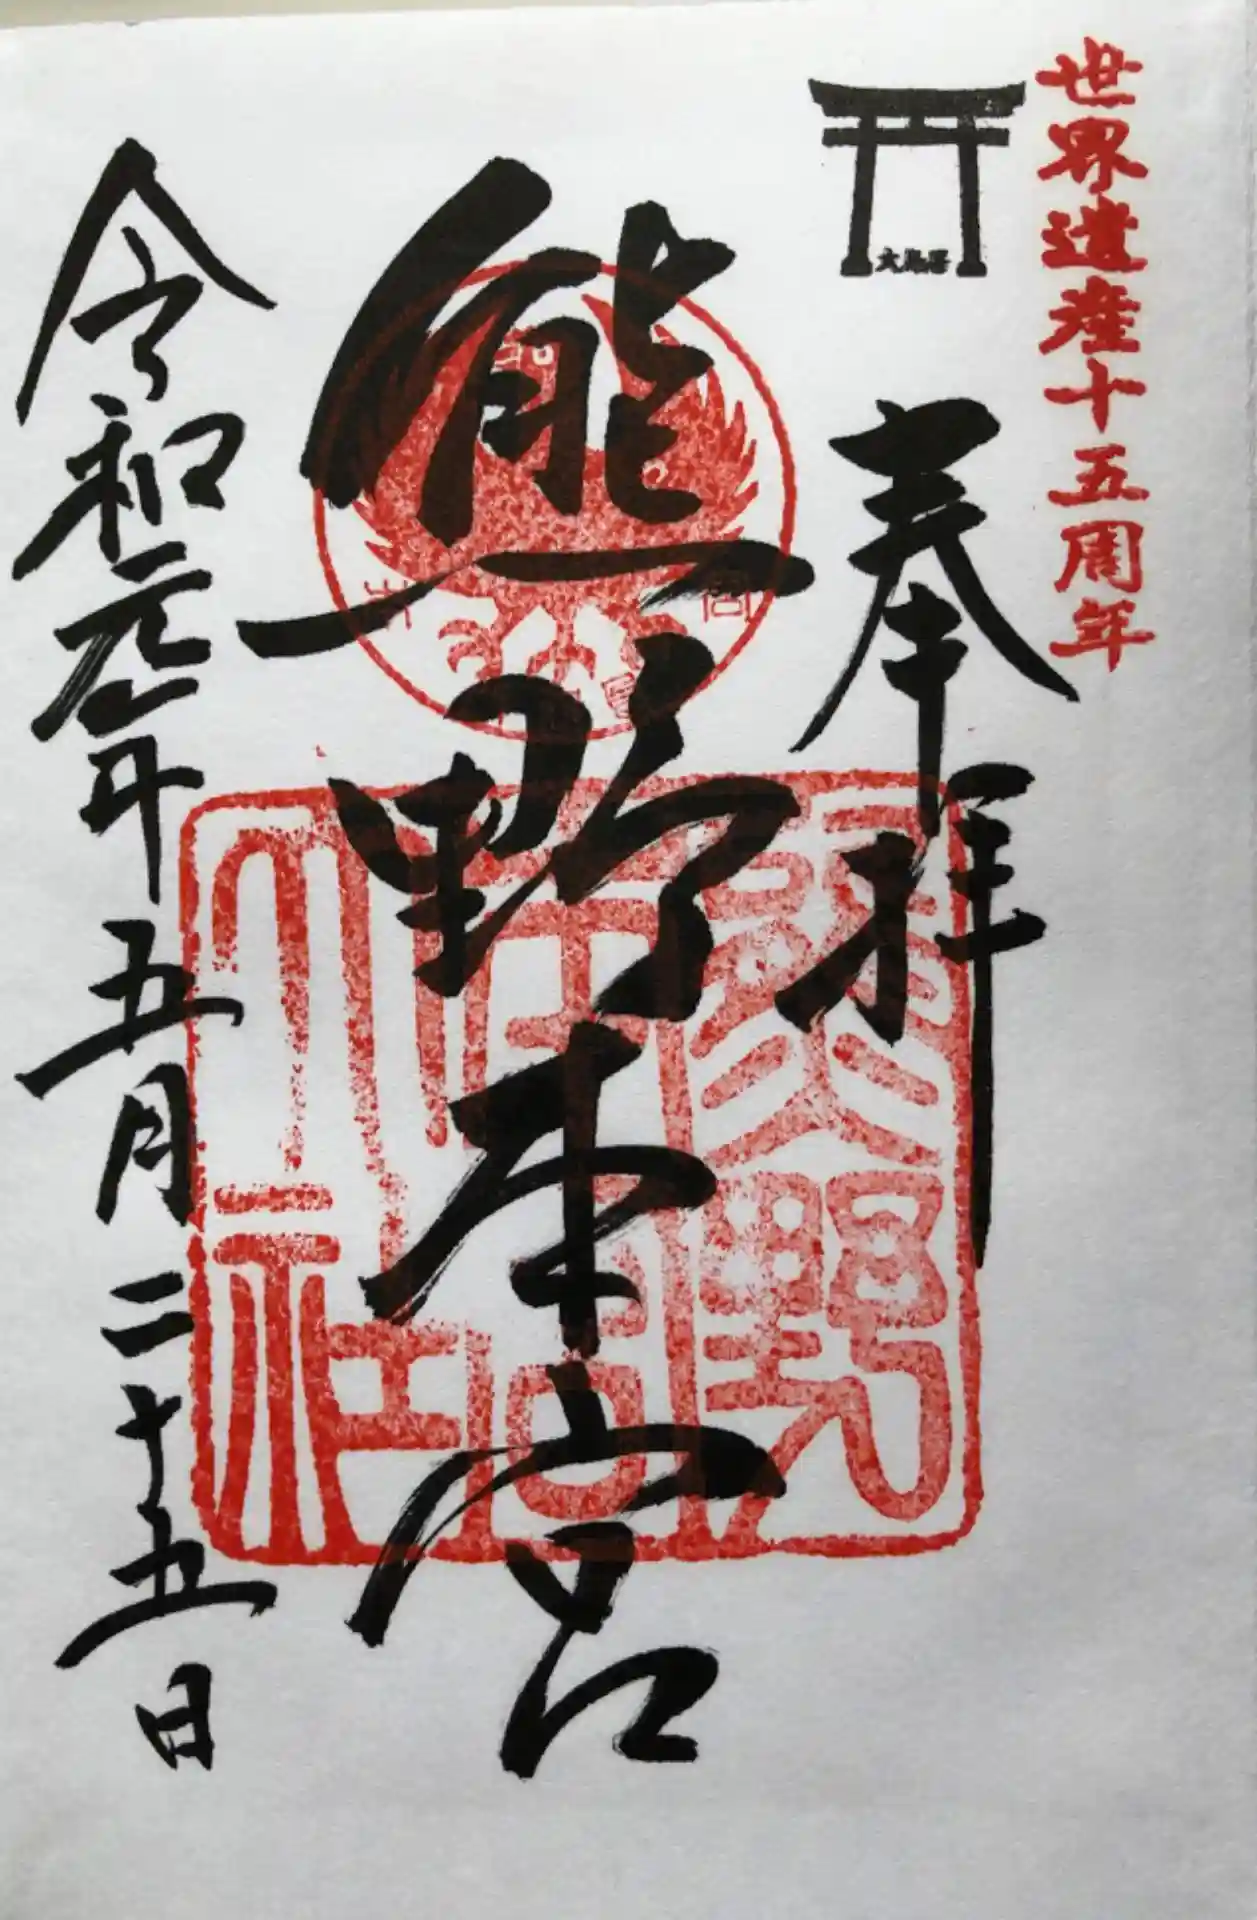 世界遺産十五周年
大鳥居
奉拝
熊野本宮
熊野本宮大社
令和元年五月二十五日